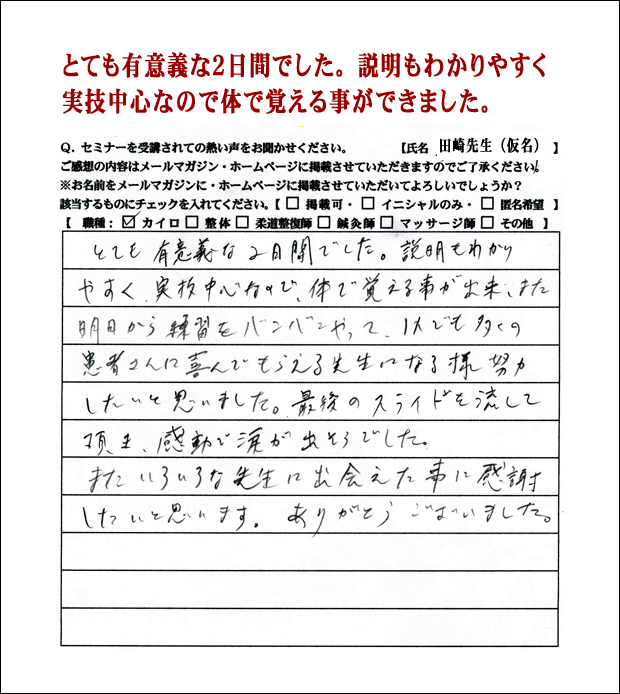 とても有意義な2日間でした。説明もわかりやすく
実技中心なので体で覚える事ができました。
Q．セミナーを受講されての熱い声をお聞かせください。　【氏名 田崎先生（仮名）】
ご感想の内容はメールマガジン・ホームページに掲載させていただきますのでご了承ください。
※お名前をメールマガジンに・ホームページに掲載させていただいてよろしいでしょうか？
該当するものにチェックを入れてください。【 □ 掲載可・ □ イニシャルのみ・ □ 匿名希望 】
【 職種： ☑ カイロ □ 整体 □ 柔道整復師 □ 鍼灸師 □ マッサージ師 □ その他 】
とても有意義な2日間でした。説明もわかり
やすく、実技中心なので、体で覚える事が出来、また
明日から練習をバンバンやって、1人でも多くの
患者さんに喜んでもらえる先生になる様努力
したいと思いました。最後のスライドを流して
頂き、感動で涙が出そうでした。
またいろいろな先生に出会えた事に感謝
したいと思います。ありがとうございました。